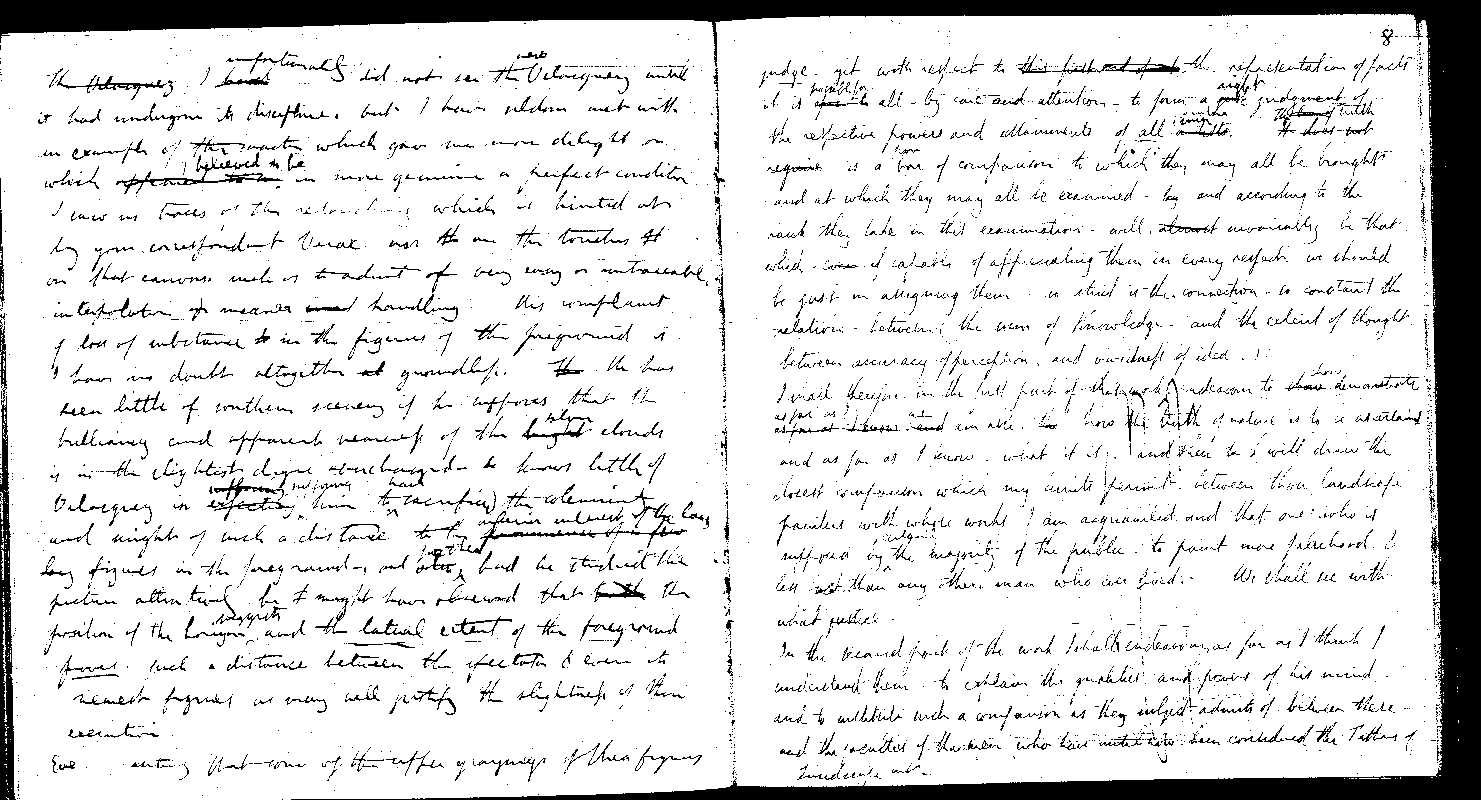 The Velasquez I unfortunately did not see the Velasquez until
it had undergone its discipline, but I have seldom met with
an example of the master which gave me more delight or
which I believed to be in more genuine or perfect condition
I saw no traces of the retouching which is hinted at
by your correspondent Verax nor are the touches
on that canvass such as to admit of very easy or untraceable
interpolation of meaner handling His complaint
of loss of substance in the figures of the foreground is
I have no doubt altogether groundless. He has
seen little of southern scenery if he supposes that the
brilliancy and apparent nearness of the silver clouds
is in the slightest degree overcharged & knows little of
Velasquez in supposing him to have sacrificed the solemnity
and might of such a distance to the inferior interest of the
figures in the foreground and had he studied the
picture attentively he might have observed that the
position of the horizon suggests and the lateral extent of the foreground
proves such a distance between the spectator & even its
nearest figures as may well justify the slightness of their
execution
Eve that some of the upper of these figures
8
judge yet with respect to the representation of facts
it is possible for all - by care and attention - to form a right judgment of
the respective powers and attainments of all. Truth
is a bar of comparison to which they may all be brought
and at which they may all be examined - by and according to the
rank they take in this examination - will almost invariably be that
which if capable of appreciating them in every respect we should
be just in assigning them so strict is the connection - so constant the
relation - between the sum of knowledge - and the extent of thought
between accuracy of perception, and vividness of idea.
I shall therefore in the first part of that work endeavour to demonstrate
as far as I am able how the truth of nature is to be ascertained
and as far as I know what it is. and then I will draw the
closest comparison which my limits permit between those landscape
painters with whose works I am acquainted and that one who is
supposed by the majority of the public to paint more falsehood &
less than any other man who ever lived. We shall see with
what justice.
In the second part of the work I shall endeavour as far as I think I
understand them to explain the qualities and powers of his mind
and to institute such a comparison as they subject admits of between these
and the faculties of the men who have until now been considered the Fathers of
Landscape art.